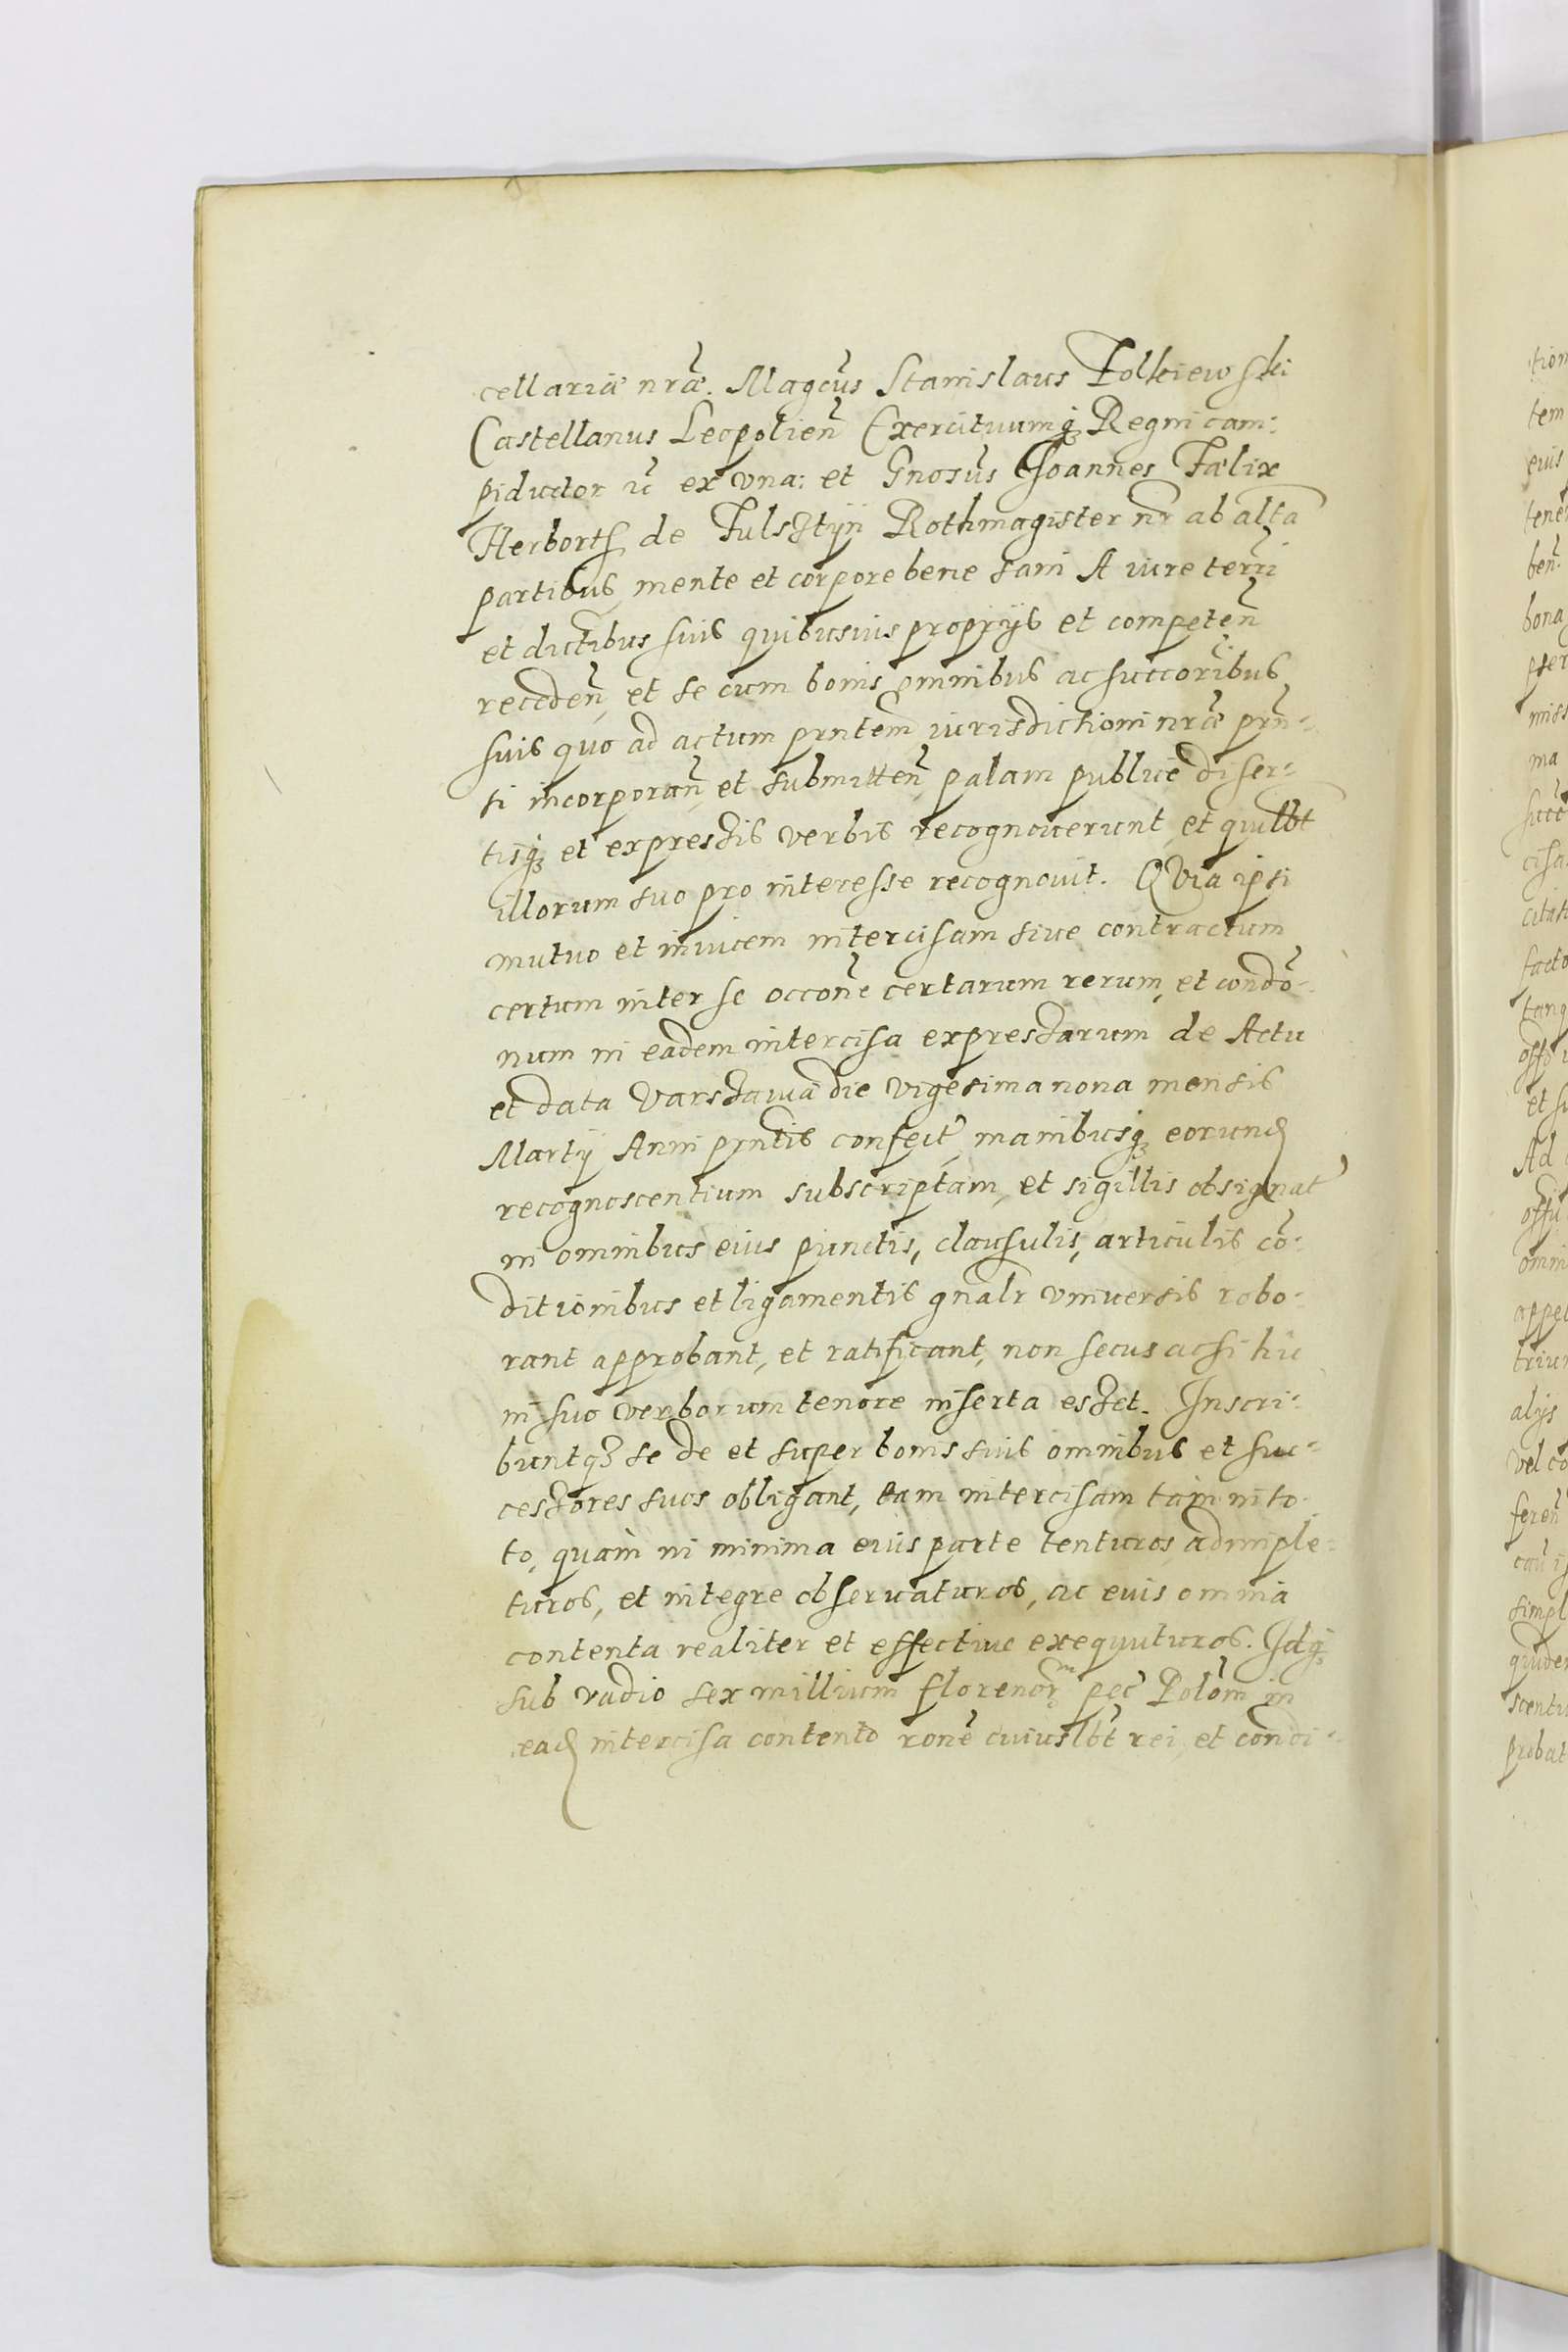 cellariæ nr̃æ. Magcũs Stanislaus Zolkiewski
Castellanus Leopolien̄ Exercituumq̨ Regni cam-
piductor ec̄ ex vna: et Gnosũs Joannes Fælix
Herborth de Fulsztyn Rothmagister nr̃ ab alt̃a
partibus, mente et corpore bene sani A iure terr̃i
et dictĩbus suis quibusuis proprijs et competen̄
receden̄, et se cum bonis omnibus ac succor̃ibus
suis quo ad actum prñtem iurisdictioni nr̃æ prñ-
ti incorporan̄, et submitten̄, palam publice diser-
tisq̨ et expressis verbis recognouerunt, et quilbt
illorum suo pro interesse recognouit. QVia ipsi
mutuo et inuicem intercisam siue contractum
certum inter se occoñe certarum rerum, et condõ-
num in eadem intercisa expressarum de Actu
et data Varssauiæ die vigesima nona mensis
Martij Anni prñtis confect̃, manibusq̨ eorund
recognoscentium subscriptam, et sigillis obsignat̃
in omnibus eius punctis, clausulis, articulis cõ-
ditionibus et ligamentis gnalr̃ vniuersis robo-
rant approbant, et ratificant, non secus ac si hic
in suo verborum tenore inserta esset. Inscri-
buntq̨ se de et super bonis suis omnibus et suc-
cessores suos obligant, eam intercisam tam in to-
to, quàm in minima eius parte tenturos, adimple-
turos, et integre obseruaturos, ac eius omnia
contenta realiter et effectiue exequuturos. Idq̨
sub vadio sex millium florenor̃m pec̃ Polõm in
ead intercisa contento roñe cuiuslbt rei, et condi-